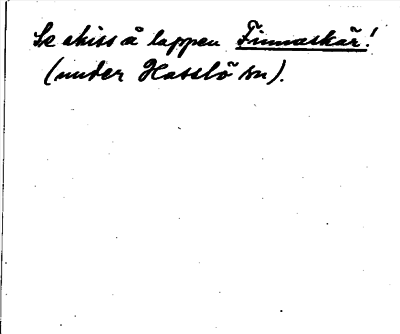 Se skiss å lappen Finnaskär!
(under Hasslö sn).